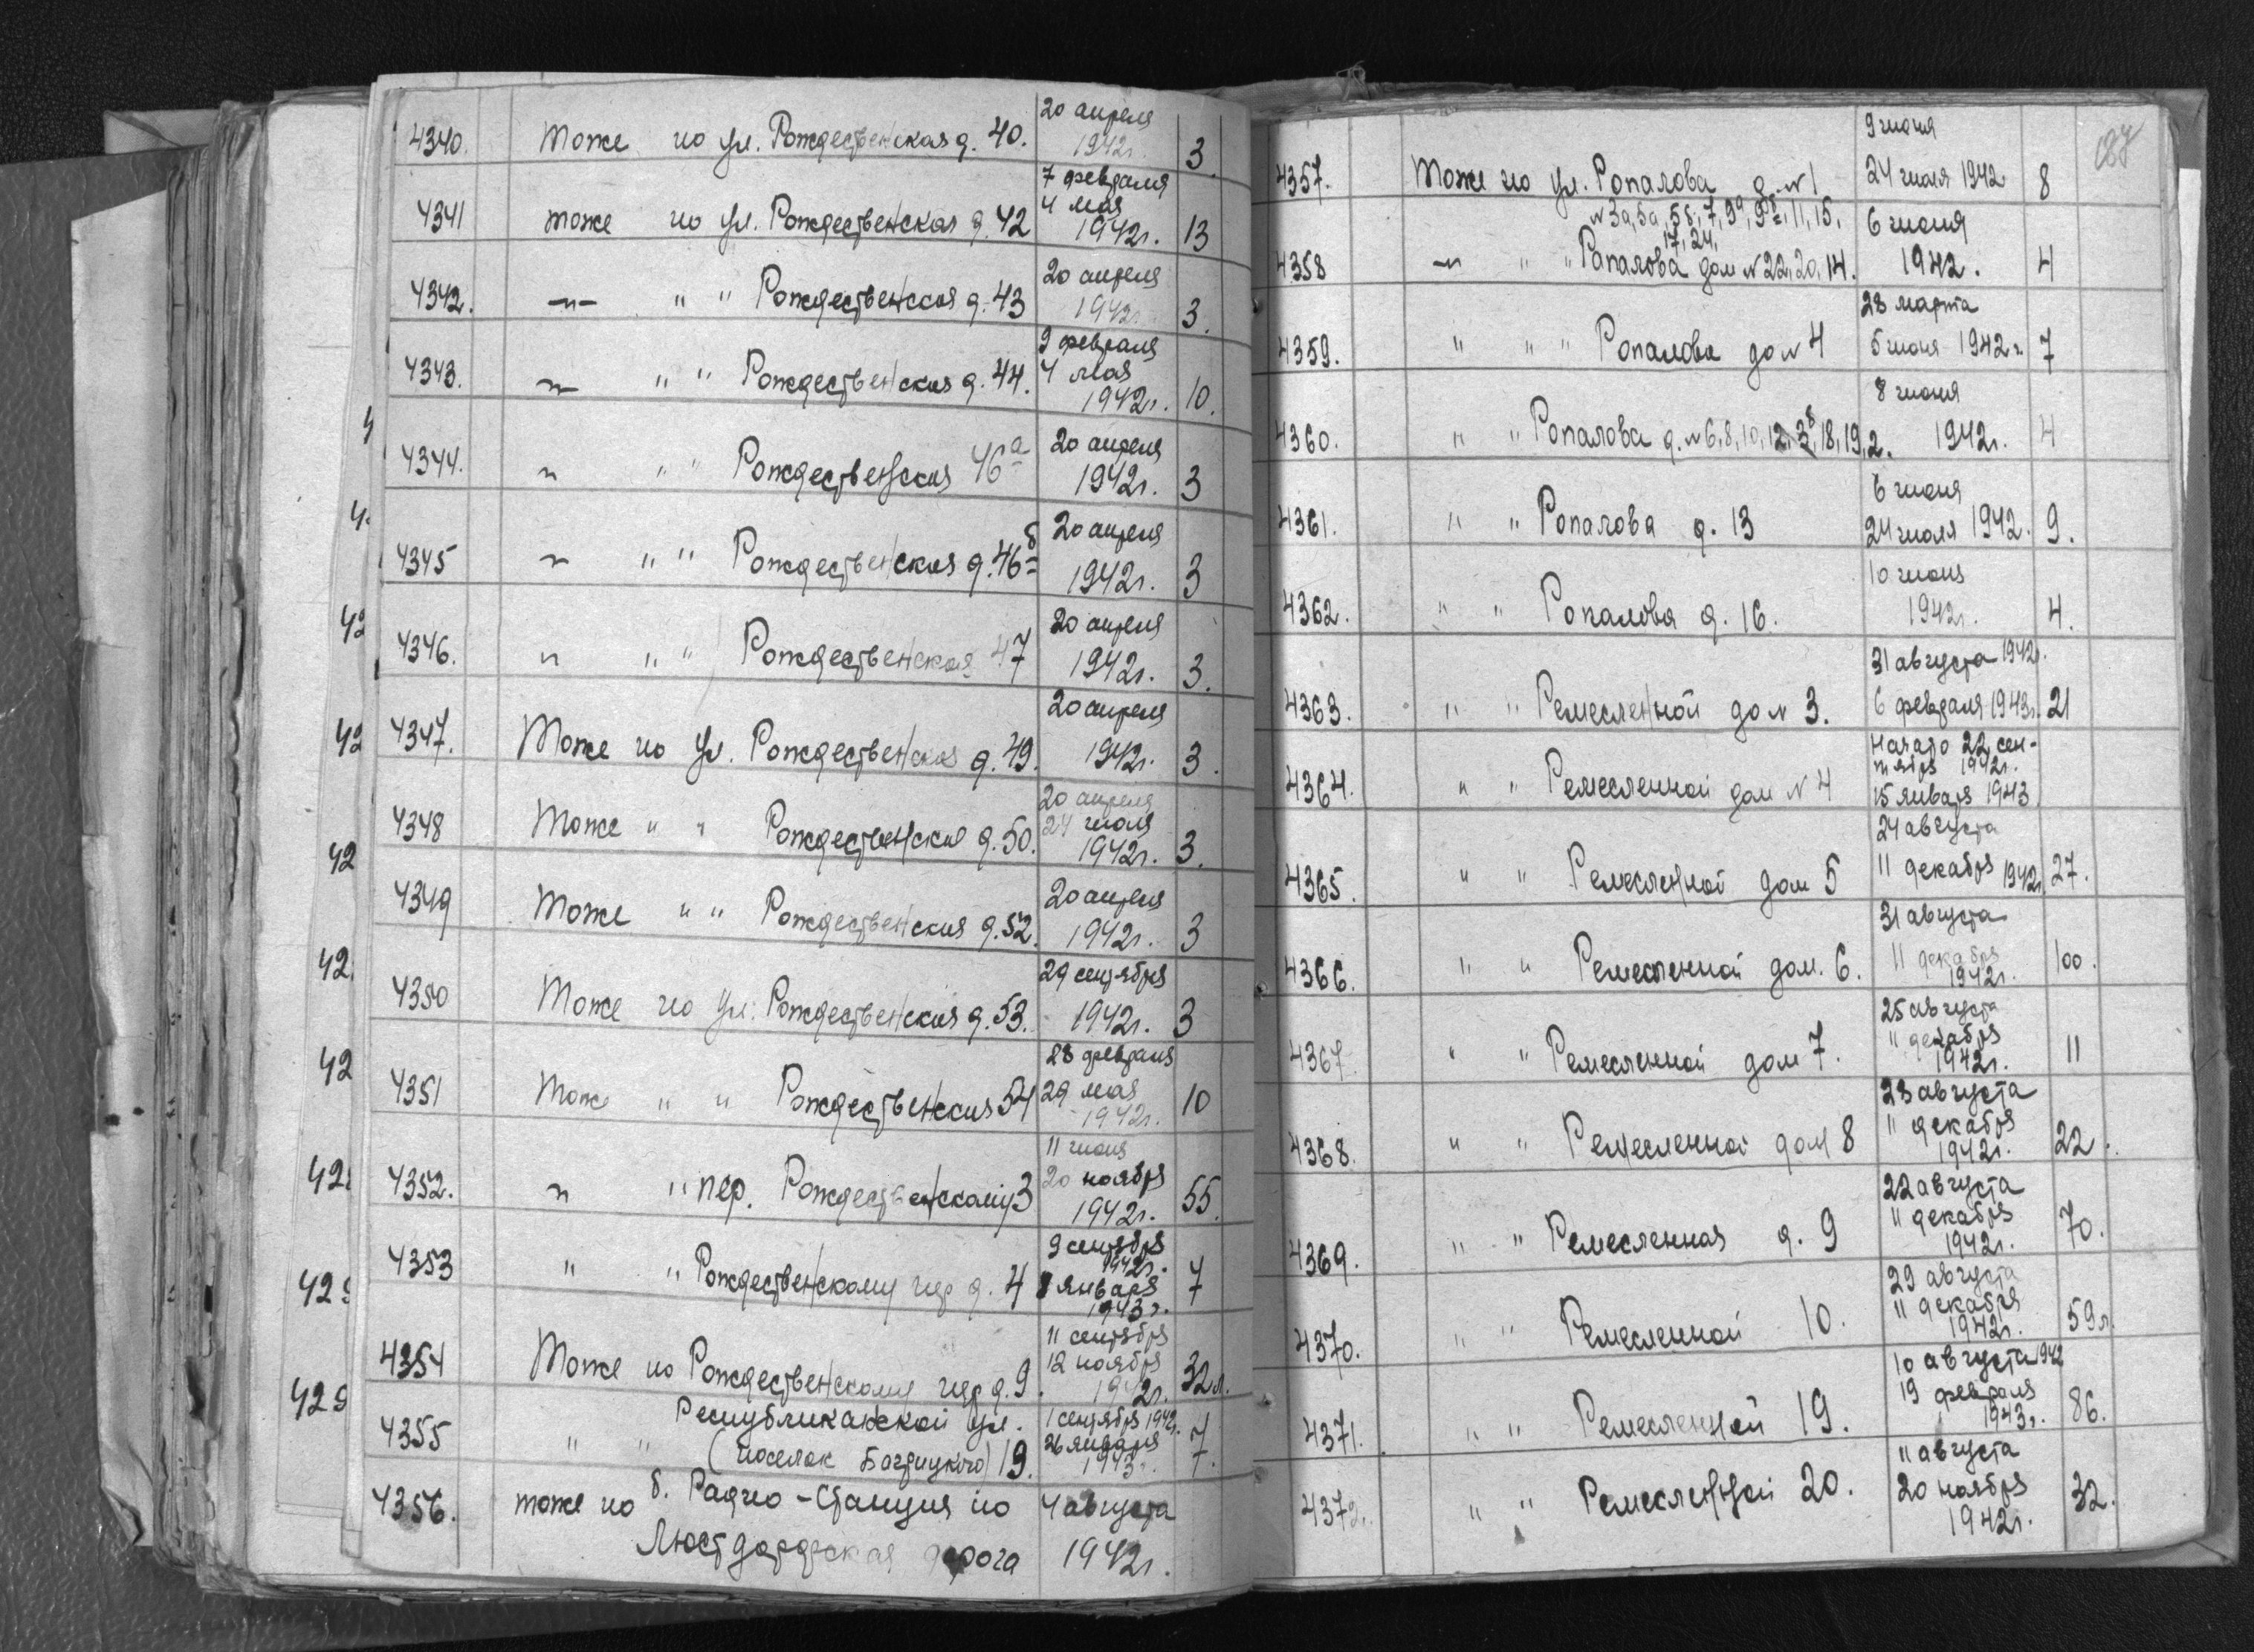 4340. Тоже по ул. Рождественская д. 40. 20 апреля 1942г. 3.
4341 тоже по ул. Рождественская д. 42 7 февраля 4 мая 1942г. 13
4342. —„— „ „ Рождественская д. 43 20 апреля 1942г. 3.
4343. —„— „ „ Рождественская д. 44. 9 февраля 4 мая 1942г. 10.
4344. „ „ „ Рождественская 46а 20 апреля 1942г. 3
4345 „ „ „ Рождественская д. 46б 20 апреля 1942г. 3
4346. „ „ „ Рождественская 47 20 апреля 1942г. 3.
4347. Тоже по ул. Рождественская д. 49. 20 апреля 1942г. 3.
4348 Тоже „ „ Рождественская д. 50. 20 апреля 24 июля 1942г. 3.
4349 Тоже „ „ Рождественская д. 52. 20 апреля 1942г. 3
4350 Тоже по ул. Рождественская д. 53. 29 сентября 1942г. 3
4351 Тоже „ „ Рождественская 54 28 февраля 29 мая 1942г. 10
4352. „ „ пер. Рождественскому 3 11 июня 20 ноября 1942г. 55.
4353 „ „ Рождественскому пер д. 4 9 сентября 1942г. 8 января 1943г. 7
4354 Тоже по Рождественскому пер д. 9. 11 сентября 12 ноября 1942г. 32л.
4355 „ „ Республиканской ул. (поселок Багрицкого) 19. 1 сентября 1942г. 26 января 1943г. 7.
4356. тоже по б. Радио-Станция по Люстдорфская дорога 4 августа 1942г.
187
4357. Тоже по ул. Ропалова д. №1 9 июня 24 июля 1942 8
№3а, 5а, 5б, 7, 9а, 9б, 11, 15,
17, 24,
4358 —„ „ „ Ропалова дом №22, 20, 14. 6 июня 1942. 4
4359. „ „ „ Ропалова до №4 28 марта 5 июня 1942г. 7
4360. „ „ Ропалова д. №6, 8, 10, 12, 3б, 18, 19, 2. 8 июня 1942г. 4
4361. „ „ Ропалова д. 13 6 июня 24 июля 1942. 9.
4362. „ „ Ропалова д. 16. 10 июня 1942г. 4.
4363. „ „ Ремесленной до № 3. 31 августа 1942г. 6 февраля 1943г. 21
4364. „ „ Ремесленной дом №4 Начато 22 сентября 1942г. 15 января 1943
4365. „ „ Ремесленной дом 5 24 августа 11 декабря 1942г. 27.
4366. „ „ Ремесленной дом. 6. 31 августа 11 декабря 1942г. 100.
4367 „ „ Ремесленной дом 7. 25 августа 11 декабря 1942г. 11
4368. „ „ Ремесленной дом 8 23 августа 11 декабря 1942г. 22.
4369. „ „ Ремесленная д. 9 22 августа 11 декабря 1942г. 70.
4370. „ „ Ремесленной 10. 29 августа 11 декабря 1942г. 59л.
4371. „ „ Ремесленной 19. 10 августа 1942 19 февраля 1943г. 86.
4372. „ „ Ремесленной 20. 11 августа 20 ноября 1942г. 32.